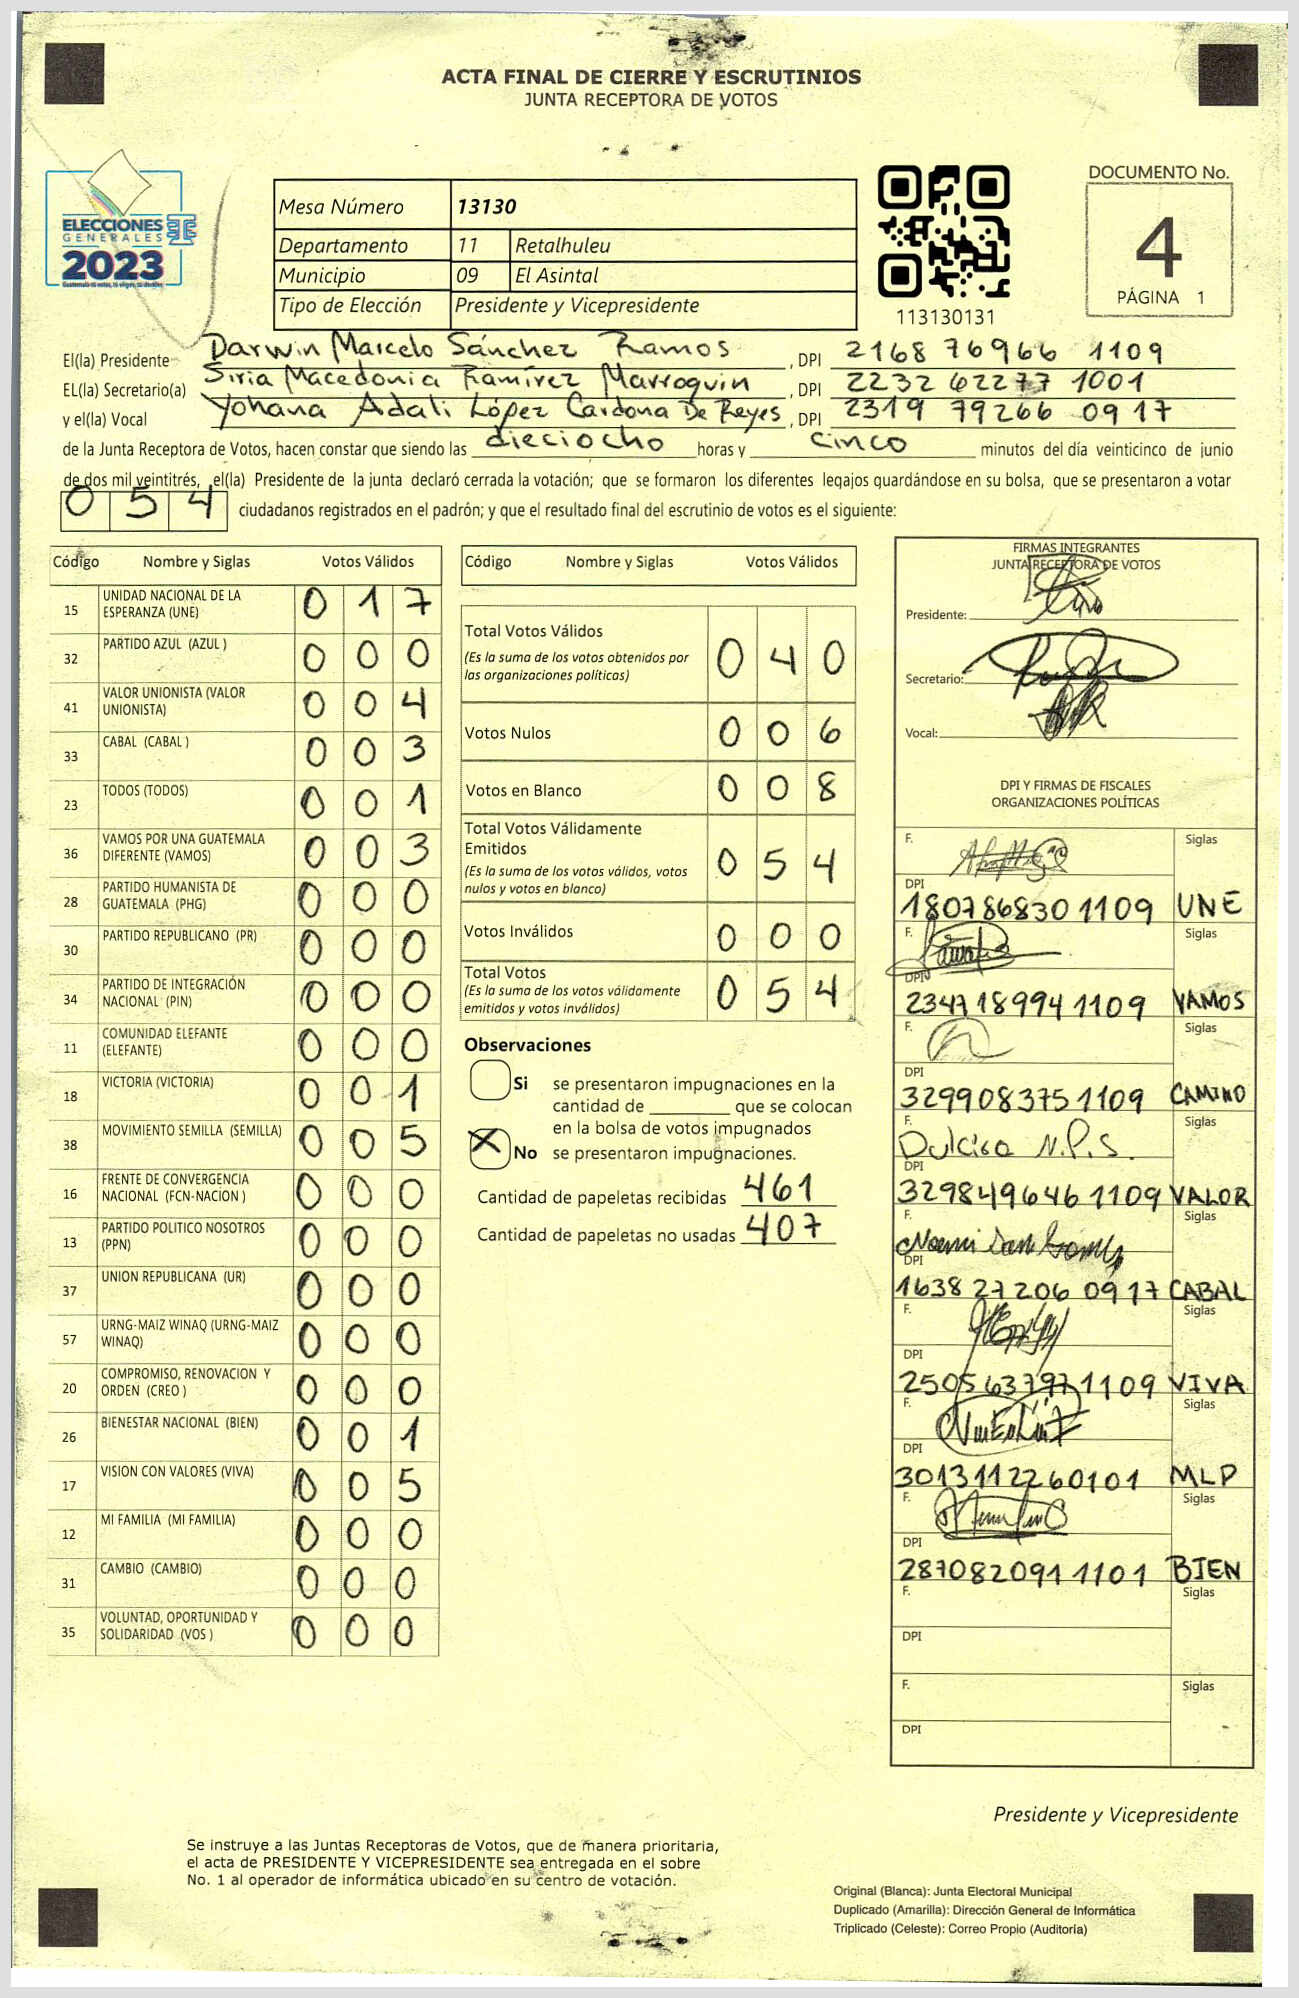 ACTA FINAL DE CIERRE Y ESCRUTINIOS
JUNTA RECEPTORA DE VOTOS
ELECCIONES
GENERALES
2023
Mesa Número 13130
Departamento 11 Retalhuleu
Municipio 09 El Asintal
Tipo de Elección Presidente y Vicepresidente
113130131
DOCUMENTO No.
4
PÁGINA 1
El(la) Presidente Darwin Marcelo Sánchez Ramos, DPI 2168 76966 1109
EL(la) Secretario(a) Siria Macedonia Ramírez Marroquin, DPI 2232 62277 1001
y el(la) Vocal Yohana Adali López Cardona De Reyes, DPI 2319 79266 0917
de la Junta Receptora de Votos, hacen constar que siendo las dieciocho horas y cinco minutos del día veinticinco de junio
de dos mil veintitrés, el(la) Presidente de la junta declaró cerrada la votación; que se formaron los diferentes legajos guardándose en su bolsa, que se presentaron a votar
0 5 4 ciudadanos registrados en el padrón; y que el resultado final del escrutinio de votos es el siguiente:
Código Nombre y Siglas Votos Válidos
15 UNIDAD NACIONAL DE LA ESPERANZA (UNE) 0 1 7
32 PARTIDO AZUL (AZUL ) 0 0 0
41 VALOR UNIONISTA (VALOR UNIONISTA) 0 0 4
33 CABAL (CABAL ) 0 0 3
23 TODOS (TODOS) 0 0 1
36 VAMOS POR UNA GUATEMALA DIFERENTE (VAMOS) 0 0 3
28 PARTIDO HUMANISTA DE GUATEMALA (PHG) 0 0 0
30 PARTIDO REPUBLICANO (PR) 0 0 0
34 PARTIDO DE INTEGRACIÓN NACIONAL (PIN) 0 0 0
11 COMUNIDAD ELEFANTE (ELEFANTE) 0 0 0
18 VICTORIA (VICTORIA) 0 0 1
38 MOVIMIENTO SEMILLA (SEMILLA) 0 0 5
16 FRENTE DE CONVERGENCIA NACIONAL (FCN-NACION ) 0 0 0
13 PARTIDO POLITICO NOSOTROS (PPN) 0 0 0
37 UNION REPUBLICANA (UR) 0 0 0
57 URNG-MAIZ WINAQ (URNG-MAIZ WINAQ) 0 0 0
20 COMPROMISO, RENOVACION Y ORDEN (CREO ) 0 0 0
26 BIENESTAR NACIONAL (BIEN) 0 0 1
17 VISION CON VALORES (VIVA) 0 0 5
12 MI FAMILIA (MI FAMILIA) 0 0 0
31 CAMBIO (CAMBIO) 0 0 0
35 VOLUNTAD, OPORTUNIDAD Y SOLIDARIDAD (VOS ) 0 0 0
Código Nombre y Siglas Votos Válidos
Total Votos Válidos 0 4 0
(Es la suma de los votos obtenidos por
las organizaciones políticas)
Votos Nulos 0 0 6
Votos en Blanco 0 0 8
Total Votos Válidamente
Emitidos 0 5 4
(Es la suma de los votos válidos, votos
nulos y votos en blanco)
Votos Inválidos 0 0 0
Total Votos 0 5 4
(Es la suma de los votos válidamente
emitidos y votos inválidos)
Observaciones
Si se presentaron impugnaciones en la
cantidad de ________ que se colocan
en la bolsa de votos impugnados
X No se presentaron impugnaciones.
Cantidad de papeletas recibidas 461
Cantidad de papeletas no usadas 407
FIRMAS INTEGRANTES
JUNTA RECEPTORA DE VOTOS
Presidente:
Secretario:
Vocal:
DPI Y FIRMAS DE FISCALES
ORGANIZACIONES POLÍTICAS
F. Siglas
DPI
180786830 1109 UNE
F. Siglas
DPI
234718994 1109 VAMOS
F. Siglas
DPI
329908375 1109 CAMINO
F. Dulcisa N.P.S. Siglas
DPI
329849646 1109 VALOR
F. Siglas
DPI
1638 27206 0917 CABAL
F. Siglas
DPI
250563797 1109 VIVA
F. Siglas
DPI
3013112260101 MLP
F. Siglas
DPI
287082091 1101 BIEN
F. Siglas
DPI
F. Siglas
DPI
Presidente y Vicepresidente
Se instruye a las Juntas Receptoras de Votos, que de manera prioritaria,
el acta de PRESIDENTE Y VICEPRESIDENTE sea entregada en el sobre
No. 1 al operador de informática ubicado en su centro de votación.
Original (Blanca): Junta Electoral Municipal
Duplicado (Amarilla): Dirección General de Informática
Triplicado (Celeste): Correo Propio (Auditoría)